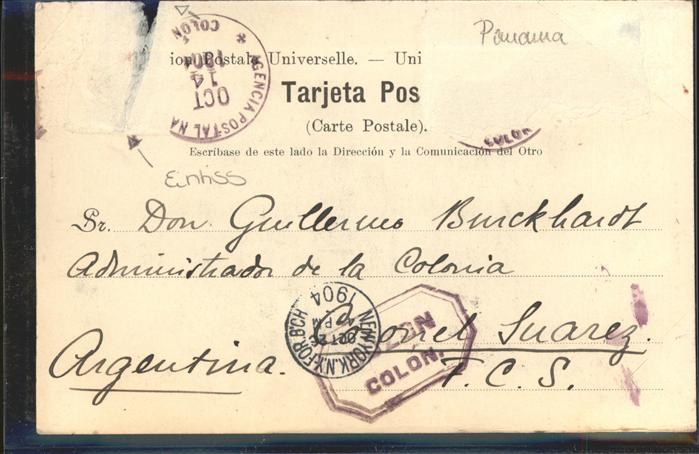 Panama
COLON
AGENCIA POSTAL NA
OCT
14
ion Postala Universelle. — Uni
Tarjeta Pos
(Carte Postale).
COLON
Escríbase de este lado la Dirección y la Comunicación del Otro
Sr. Don Guillermo Burckhardt
Administrador de la Colonia
NEW YORK, N.Y. FOR. B'CH
OCT 2
PM
1904
Coronel Suarez.
COLON.
Argentina. F. C. S.